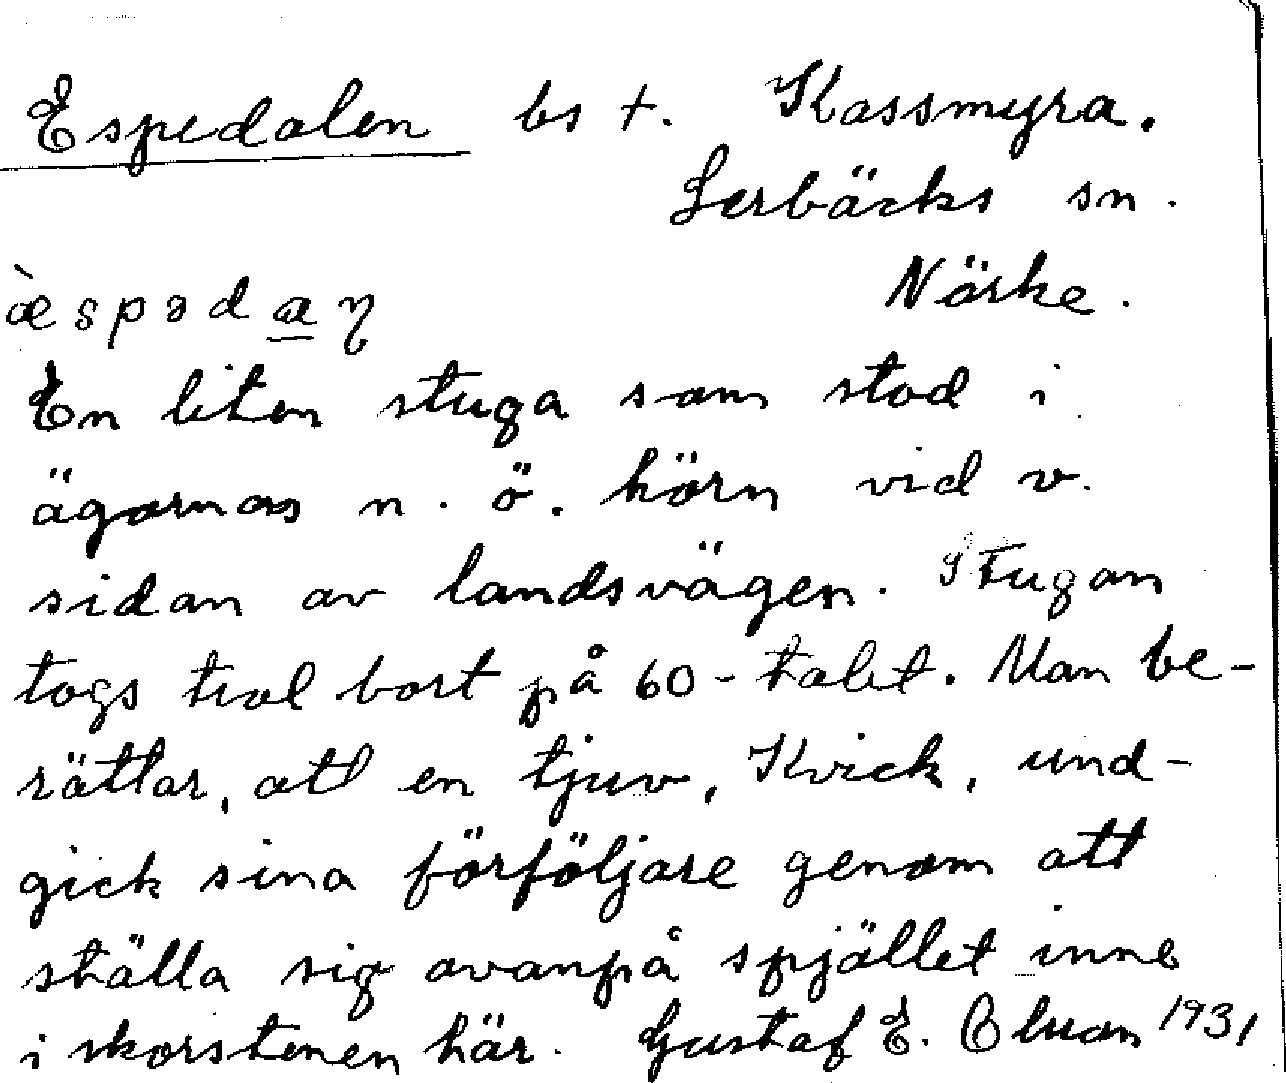 Espedalen bs †. Kassmyra.
Lerbäcks sn.
Närke.
æ̀spədaŋ
En liten stuga som stod i
ägornas n. ö. hörn vid v.
sidan av landsvägen. Stugan
togs trol bort på 60-talet. Man be-
rättar, att en tjuv, Kvick, und-
gick sina förföljare genom att
ställa sig ovanpå spjället inne
i skorstenen här. Gustaf E. 1931